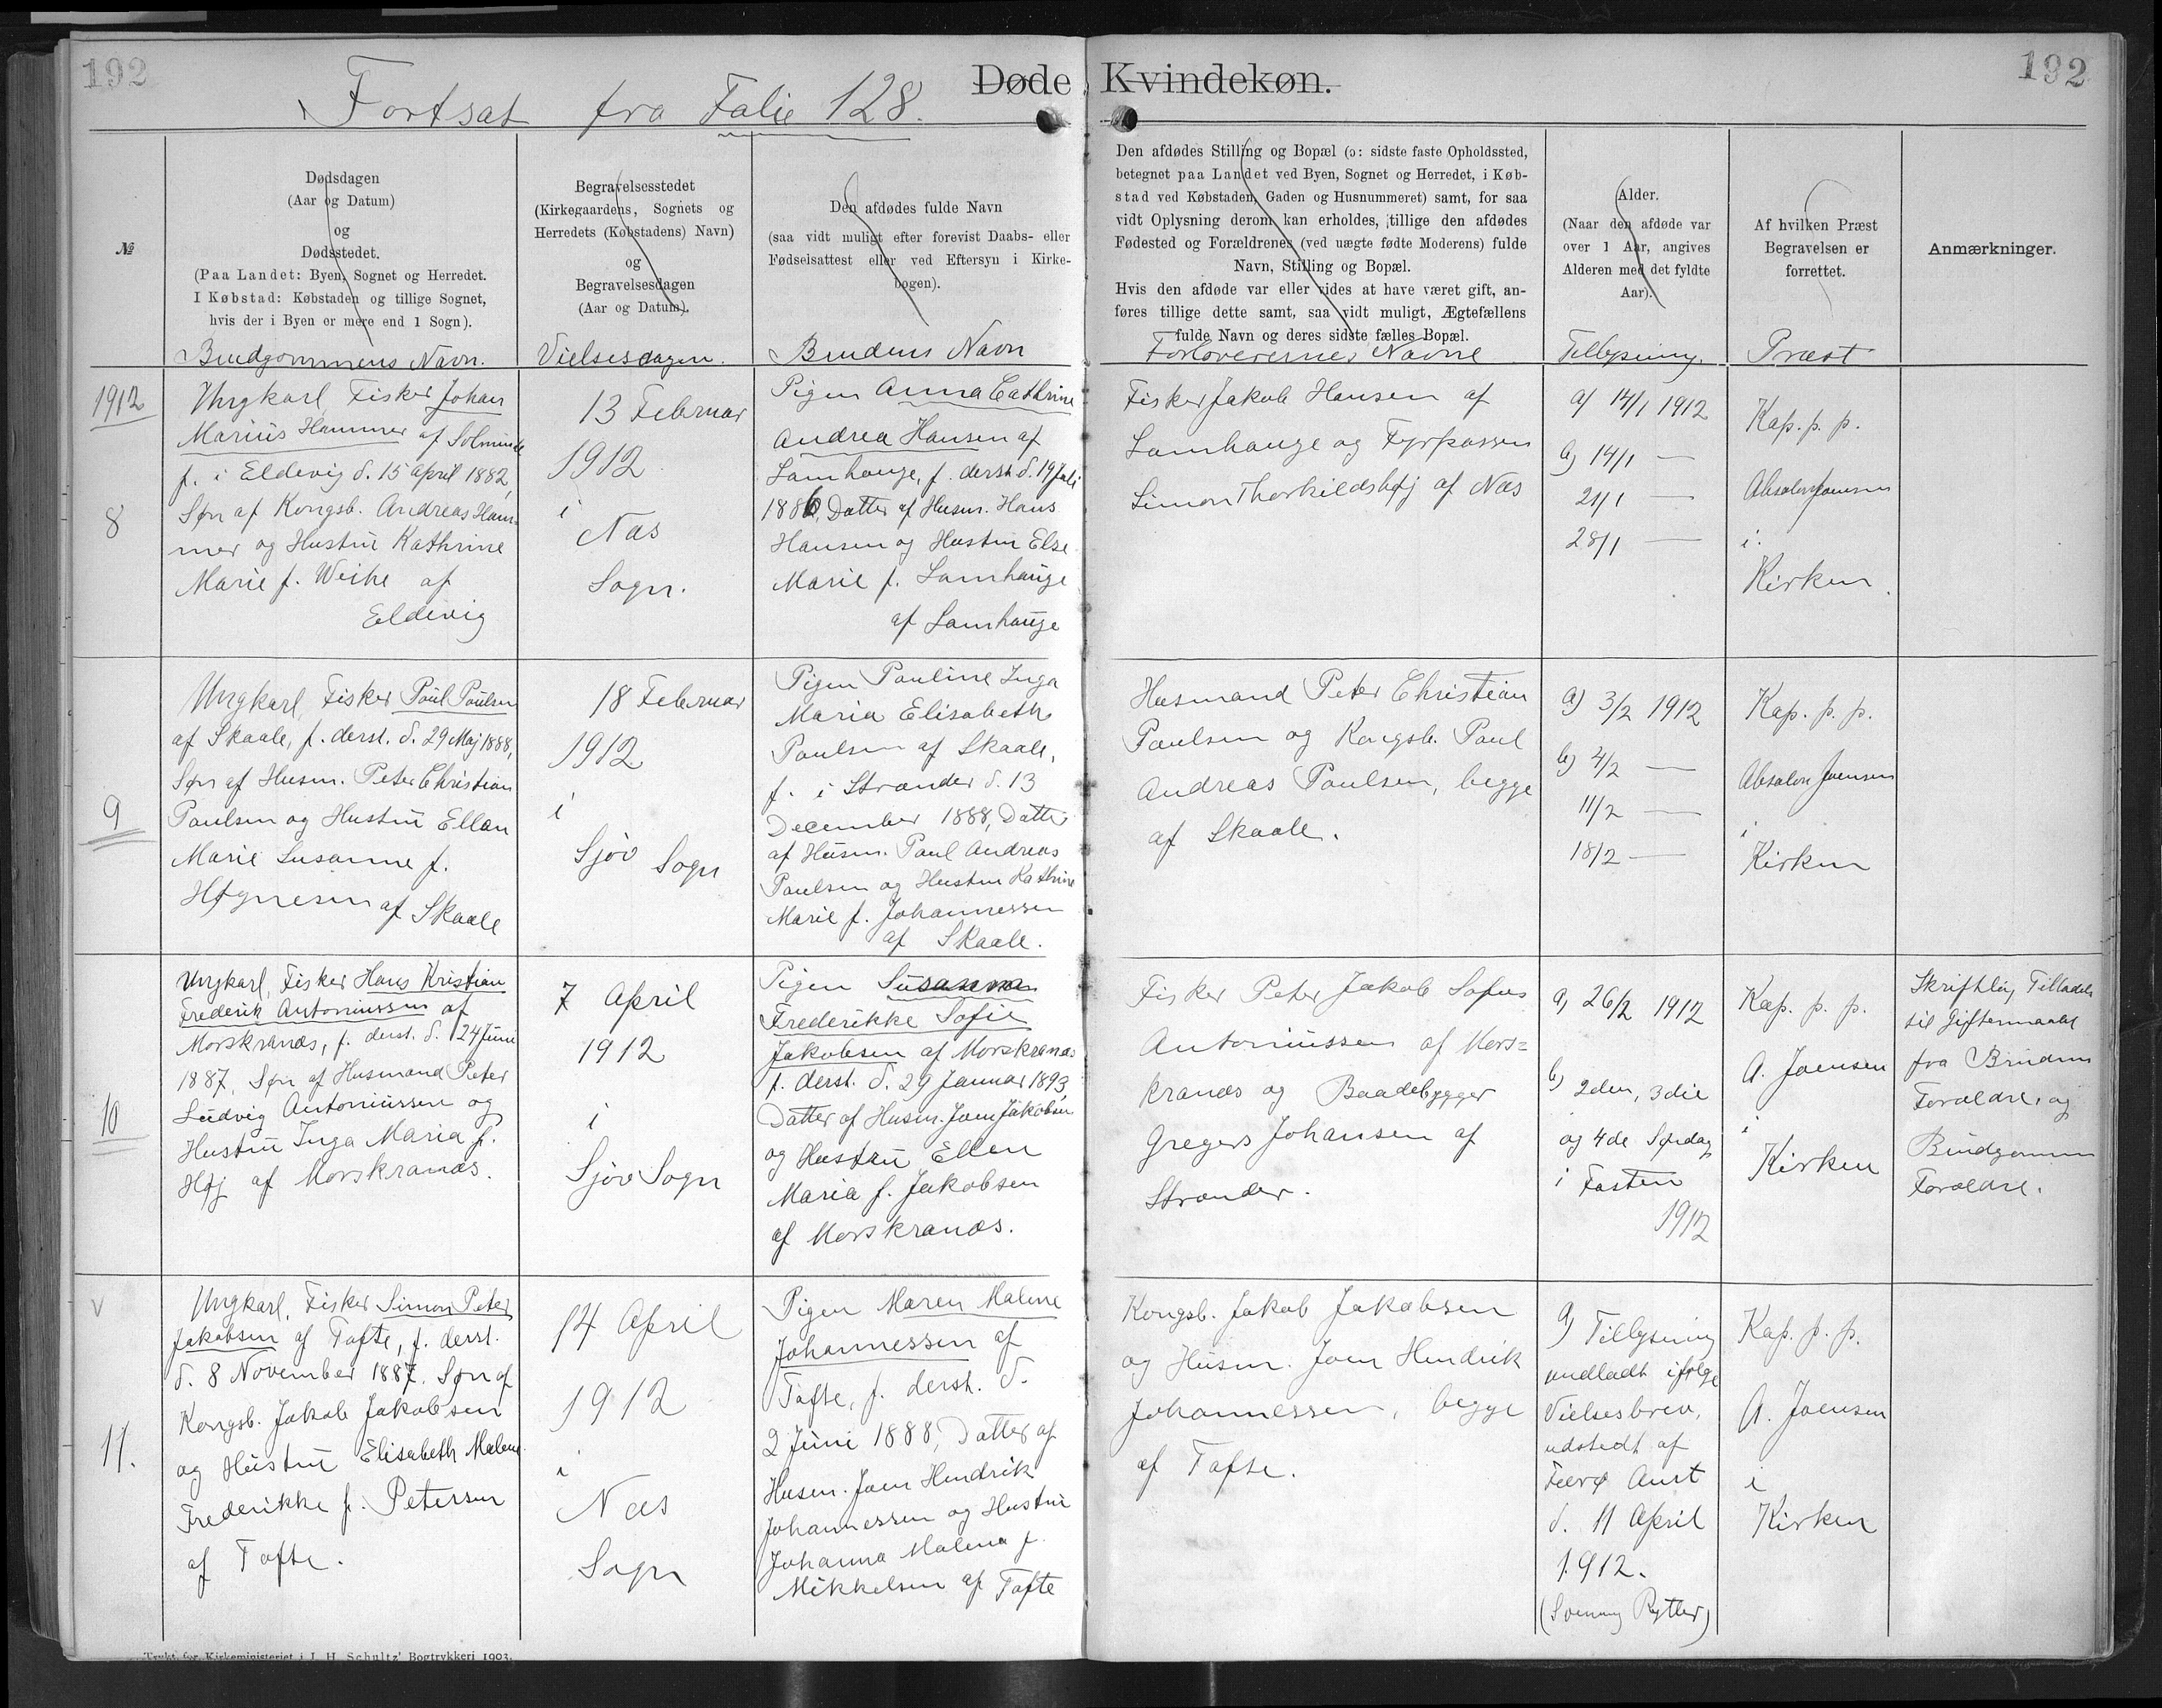 192
192
Døde Kvindekøn.
Fortsat fra Folie 128.
№
Dødsdagen
(Aar og Datum)
og
Dødsstedet.
(Paa Landet: Byen, Sognet og Herredet.
I Købstad: Købstaden og tillige Sognet,
hvis der i Byen er mere end 1 Sogn).
Brudgommens Navn.
Begravelsesstedet
(Kirkegaardens, Sognets og
Herredets (Købstadens) Navn)
og
Begravelsesdagen
(Aar og Datum).
Vielsesdagen.
Den afdødes fulde Navn
(saa vidt muligt efter forevist Daabs- eller
Fødselsattest eller ved Eftersyn i Kirke-
bogen).
Brudens Navn
Den afdødes Stilling og Bopæl (ɔ: sidste faste Opholdssted,
betegnet paa Landet ved Byen, Sognet og Herredet, i Køb-
stad ved Købstaden, Gaden og Husnummeret) samt, for saa
vidt Oplysning derom kan erholdes, tillige den afdødes
Fødested og Forældrenes (ved uægte fødte Moderens) fulde
Navn, Stilling og Bopæl.
Hvis den afdøde var eller vides at have været gift, an-
føres tillige dette samt, saa vidt muligt, Ægtefællens
fulde Navn og deres sidste fælles Bopæl.
Forloverernes Navne
Alder.
(Naar den afdøde var
over 1 Aar, angives
Alderen med det fyldte
Aar).
Tillysning.
Af hvilken Præst
Begravelsen er
forrettet.
Præst
Anmærkninger.
1912
8
Ungkarl, Fisker Johan
Marius Hammer af Solmunde
f. i Eldevig d. 15 April 1882,
Søn af Kongsb. Andreas Ham-
mer og Hustru Kathrine
Marie f. Weihe af
Eldevig
13 Februar
1912
i
Næs
Sogn.
Pigen Anna Cathrine
Andrea Hansen af
Lamhauge, f. derst. d. 19 Juli
1886, Datter af Husm. Hans
Hansen og Hustru Else
Marie f. Lamhauge
af Lamhauge
Fisker Jakob Hansen af
Lamhauge og Fyrpasser
Simon Thorkildshøj af Næs
a) 14/1 1912
b) 14/1 —
21/1 —
28/1 —
Kap. p. p.
Absalon Joensen
i
Kirken.
9
Ungkarl, Fisker Poul Poulsen
af Skaale, f. derst. d. 29 Maj 1888,
Søn af Husm. Peter Christian
Poulsen og Hustru Ellen
Marie Susanne f.
Høgnesen af Skaale
18 Februar
1912
i
Sjov Sogn
Pigen Pauline Inga
Maria Elisabeth
Poulsen af Skaale,
f. i Strænder d. 13
December 1888, Datter
af Husm. Poul Andreas
Poulsen og Hustru Kathrine
Marie f. Johannessen
af Skaale.
Husmand Peter Christian
Poulsen og Kongsb. Poul
Andreas Poulsen, begge
af Skaale.
a) 3/2 1912
b) 4/2 —
11/2 —
18/2 —
Kap. p. p.
Absalon Joensen
i
Kirken
10
Ungkarl, Fisker Hans Kristian
Frederik Antoniussen af
Morskranæs, f. derst. d. 24 Juni
1887, Søn af Husmand Peter
Ludvig Antoniussen og
Hustru Inga Maria f.
Høj af Morskranæs.
7 April
1912
i
Sjov Sogn
Pigen Susanna
Frederikke Sofie
Jakobsen af Morskranæs
f. derst. d. 29 Januar 1893,
Datter af Husm. Joen Jakobsen
og Hustru Ellen
Maria f. Jakobsen
af Morskranæs.
Fisker Peter Jakob Sofus
Antoniussen af Mors=
kranæs og Baadebygger
Gregers Johansen af
Strænder.
a) 26/2 1912
b) 2den, 3die
og 4de Søndag
i Fasten
1912
Kap. p. p.
A. Joensen
i
Kirken
Skriftlig Tilladels
til Giftermaalet
fra Brudens
Forældre, og
Brudgommens
Forældre.
V
11.
Ungkarl, Fisker Simon Peter
Jakobsen af Tofte, f. derst.
d. 8 November 1887. Søn af
Kongsb. Jakob Jakobsen
og Hustru Elisabeth Malene
Frederikke f. Petersen
af Tofte.
14 April
1912
i
Næs
Sogn
Pigen Maren Malene
Johannessen af
Tofte, f. derst. d.
2 Juni 1888, Datter af
Husm. Joen Hendrik
Johannessen og Hustru
Johanna Malena f.
Mikkelsen af Tofte
Kongsb. Jakob Jakobsen
og Husm. Joen Hendrik
Johannessen, begge
af Tofte.
a) Tillysning
undladt ifølge
Vielsesbrev,
udstedt af
Færø Amt
d. 11 April
1912.
(Svenning Rytter)
Kap. p. p.
A. Joensen
i
Kirken
Trykt for Kirkeministeriet i J. H. Schultz' Bogtrykkeri 1903.